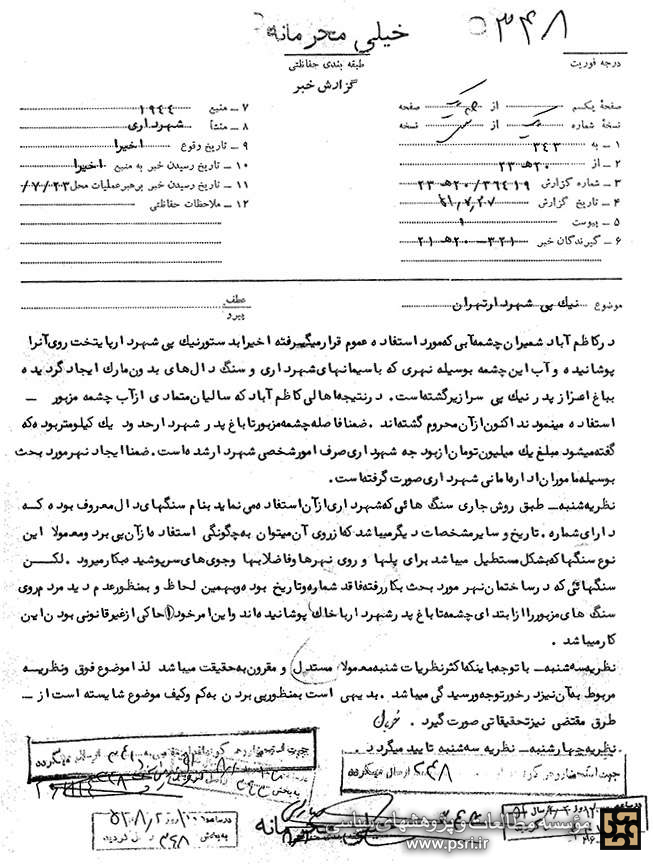 خیلی محرمانه
۳۴۸
طبقه بندی حفاظتی
درجه فوریت
گزارش خبر
صفحهٔ یکم از صفحه
نسخهٔ شماره از نسخه
۱ ـ به ۳۴۳
۲ ـ از ۲۰هـ ۲۳
۳ ـ شماره گزارش ۲۰/۳۶۴۱۹هـ ۲۳
۴ ـ تاریخ گزارش ۵۱/۷/۲۷
۵ ـ پیوست ۱
۶ ـ گیرندگان خبر ۳۲۱ ـ ۲۰هـ ۲۱
۷ ـ منبع ۱۹۴۴
۸ ـ منشأ شهرداری
۹ ـ تاریخ وقوع اخیرا
۱۰ ـ تاریخ رسیدن خبر به منبع اخیرا
۱۱ ـ تاریخ رسیدن خبر برهبرعملیات محل ۷/۲۳/
۱۲ ـ ملاحظات حفاظتی
موضوع نیك پی شهردارتهران
عطف
پیرو
درکاظم آباد شمیران چشمه‌آبی که‌مورد استفاده عموم قرارمیگرفته اخیرا بدستورنیك پی شهردارپایتخت روی‌آنرا
پوشانیده و آب این چشمه بوسیله نهری که باسیمانهای شهرداری و سنگ دال‌های بدون مارك ایجاد گردیده
بباغ اعزاز پدر نیك پی سرازیر گشته‌است. درنتیجه‌اهالی کاظم آباد که سالیان متمادی ازآب چشمه مزبور ـ
استفاده مینمودند اکنون ازآن محروم گشته‌اند. ضمنا فاصله چشمه مزبورتا باغ پدر شهردارحدود یك کیلومتربوده‌که
گفته‌میشود مبلغ یك میلیون تومان ازبودجه شهرداری صرف امورشخصی شهردارشده‌است. ضمنا ایجاد نهرمورد بحث
بوسیله ماموران اداره‌امانی شهرداری صورت گرفته‌است.
نظریه‌شنبه ـ طبق روش جاری سنگ هائی که‌شهرداری ازآن استفاده می نماید بنام سنگهای دال معروف بوده که
دارای شماره. تاریخ و سایر مشخصات دیگرمیباشد که‌ازروی آن میتوان به‌چگونگی استفاده ازآن پی برد ومعمولا این
نوع سنگها که‌بشکل مستطیل میباشد برای پلها و روی نهرها وفاضلابها وجوی‌های سرپوشیده بکارمیرود. لکن
سنگهائی که درساختمان نهر مورد بحث بکاررفته‌فاقد شماره‌وتاریخ بوده‌وبهمین لحاظ وبمنظورعدم دید مردم‌روی
سنگ های مزبوررا ازابتدای چشمه‌تا باغ پدرشهرداربا خاك پوشانیده‌اند واین امرخود حاکی ازغیرقانونی بودن این
کارمیباشد.
نظریه‌سه‌شنبه ـ با توجه‌باینکه‌اکثرنظریات شنبه‌معمولا مستدل و مقرون به‌حقیقت میباشد لذاموضوع فوق ونظریه
مربوط به‌آن نیزدرخورتوجه‌ورسیدگی میباشد. بدیهی است بمنظورپی بردن به‌کم وکیف موضوع شایسته‌است از ـ
طرق مقتضی نیزتحقیقاتی صورت گیرد.
نظریه‌چهارشنبه ـ نظریه سه‌شنبه تایید میگردد.
ارسال میگردد
۳۴۸ ارسال میگردد
به‌بخش ۳۴۸ ارسال گردید
خیلی محرمانه
مؤسسه مطالعات و پژوهشهای سیاسی
www.psri.ir